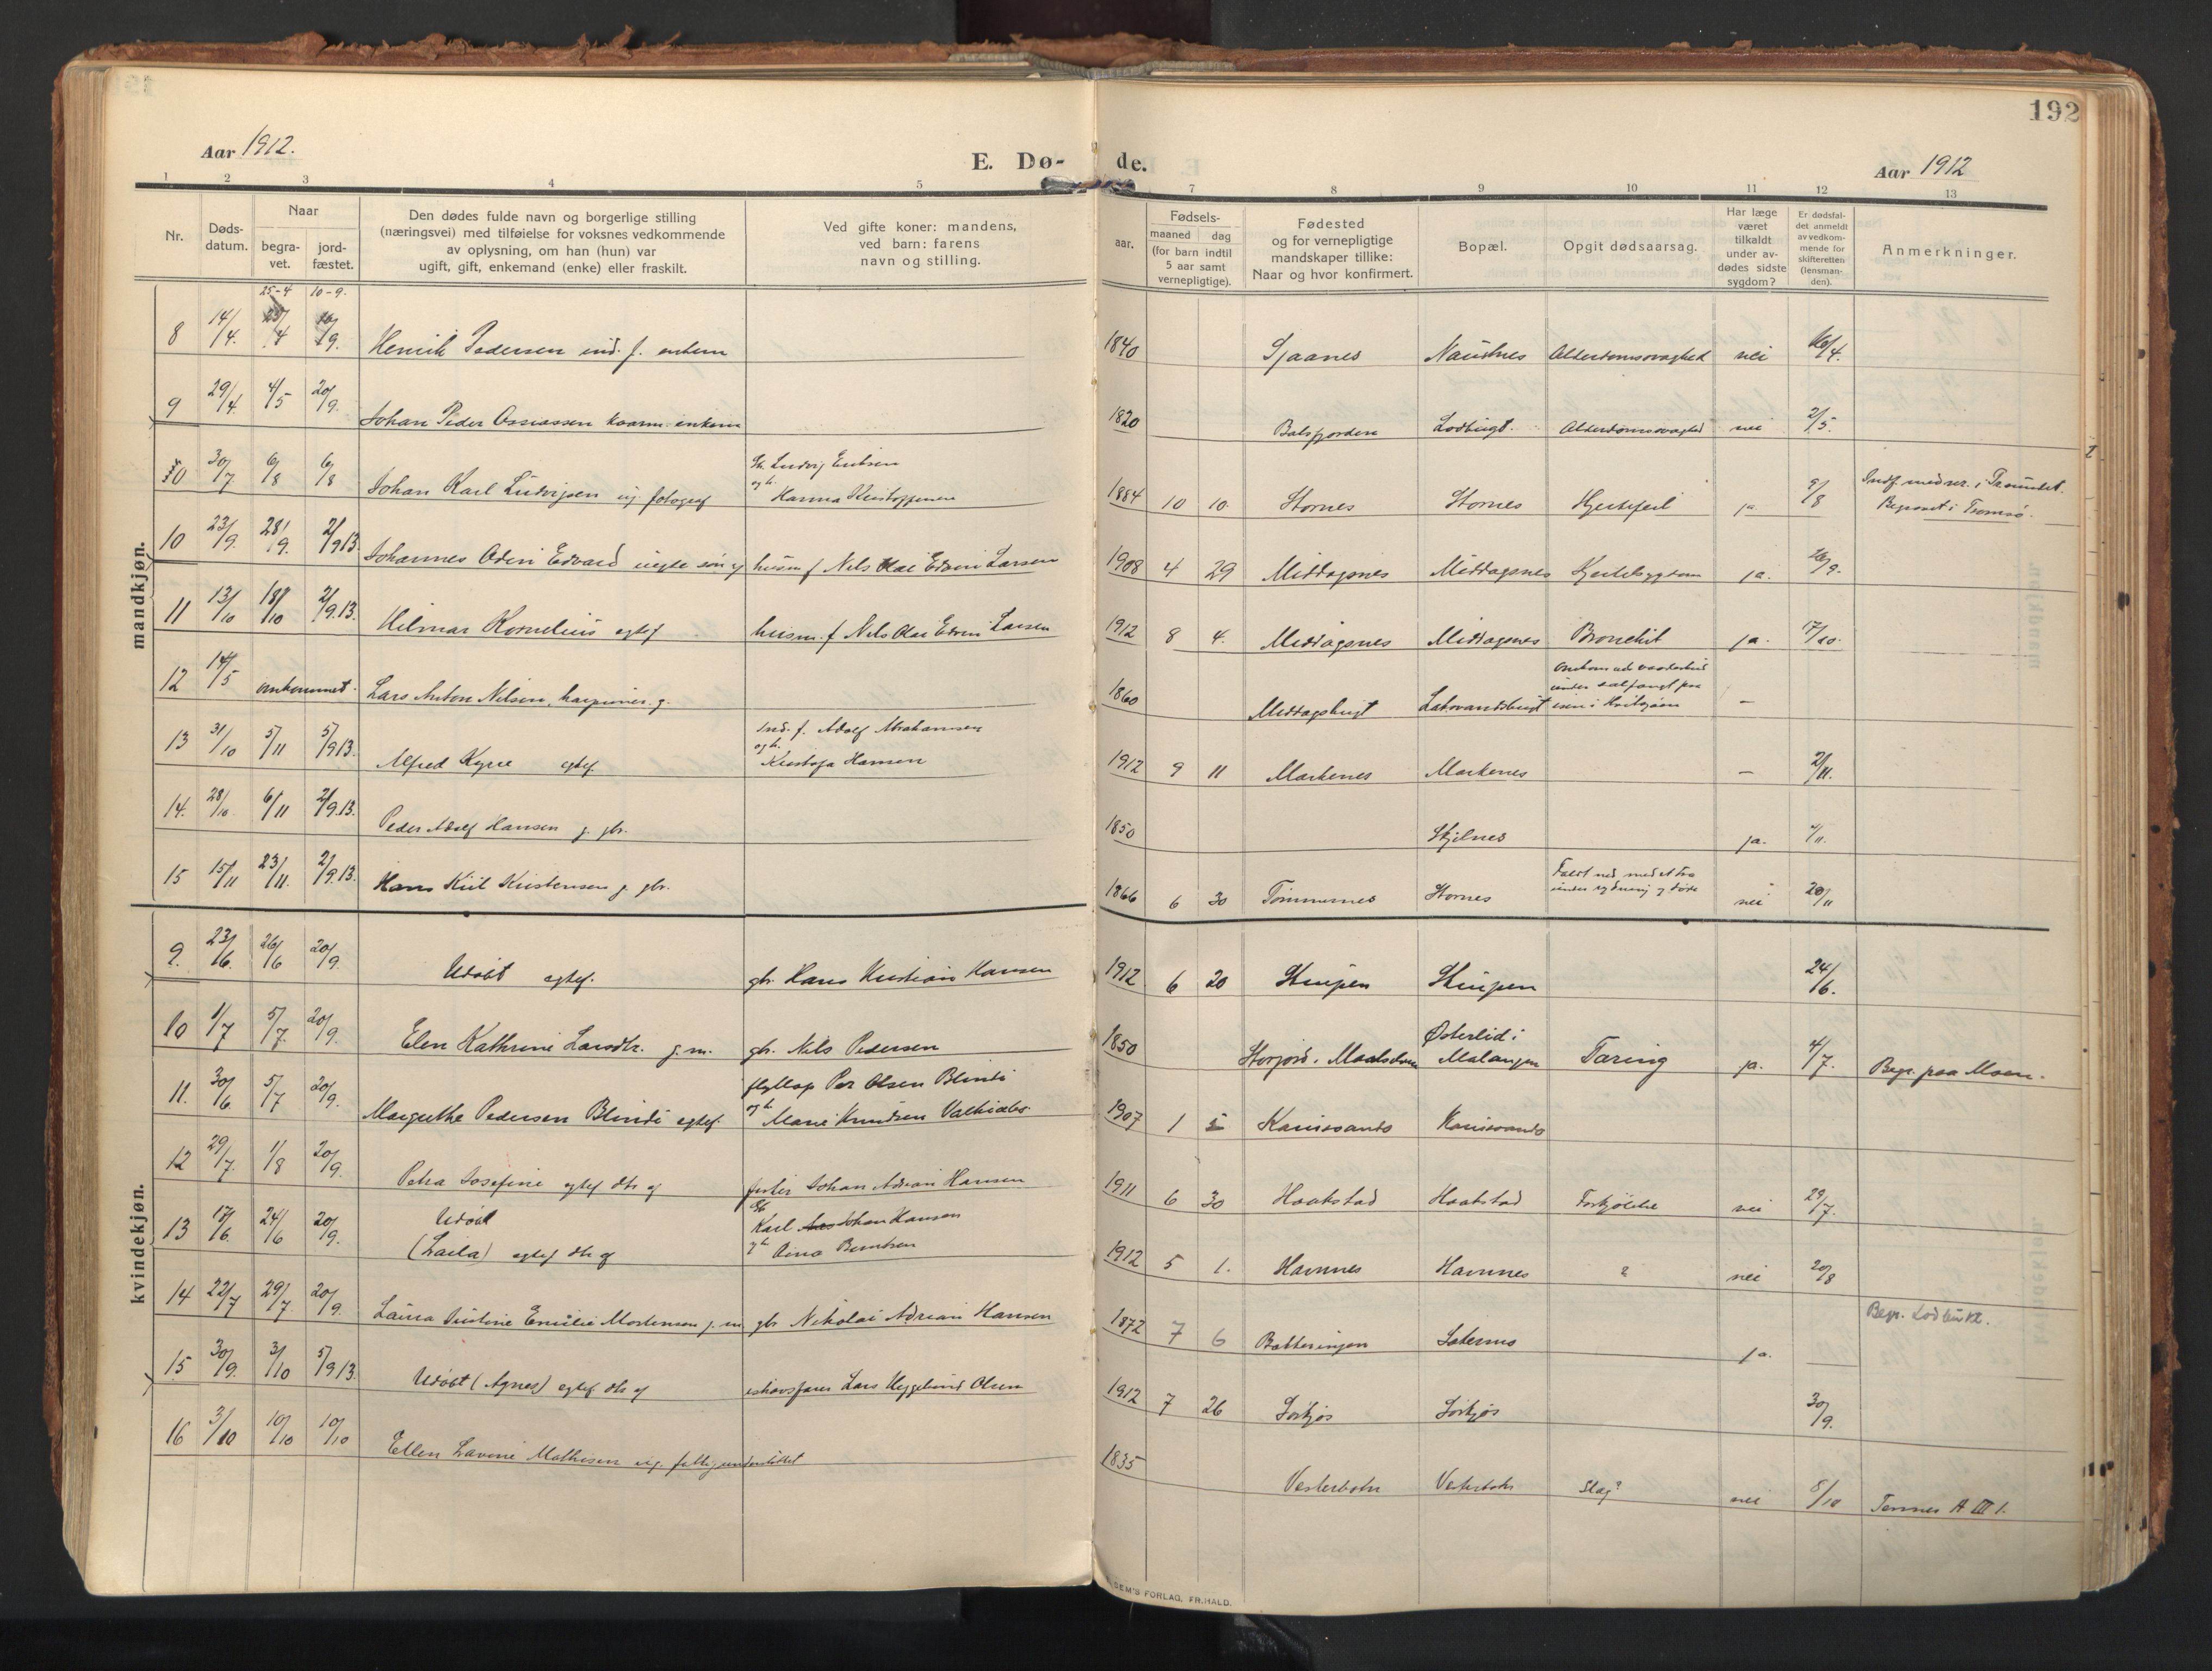 192
Aar 1912.
E. Dø- de.
Aar 1912
1 2 3 4 5 7 8 9 10 11 12 13
Nr.
Døds-
datum.
Naar
begra-
vet.
jord-
fæstet.
Den dødes fulde navn og borgerlige stilling
(næringsvei) med tilføielse for voksnes vedkommende
av oplysning, om han (hun) var
ugift, gift, enkemand (enke) eller fraskilt.
Ved gifte koner: mandens,
ved barn: farens
navn og stilling.
aar.
Fødsels-
maaned dag
(for barn indtil
5 aar samt
vernepligtige).
Fødested
og for vernepligtige
mandskaper tillike:
Naar og hvor konfirmert.
Bopæl.
Opgit dødsaarsag.
Har læge
været
tilkaldt
under av-
dødes sidste
sygdom?
Er dødsfal-
det anmeldt
av vedkom-
mende for
skifteretten
(lensman-
den).
Anmerkninger.
mandkjøn.
25-4 10-9.
8 14/4. Henrik Pedersen ind. f. enkem 1840 Sjaanes Naustnes Alderdomssvaghed nei 16/4.
9 29/4. 4/5 20/9. Johan Peder Ossiassen kaarm. enkem 1820 Balsfjorden Lodbugt. Alderdomssvaghed nei 2/5.
10 30/7 6/8 6/8 Johan Karl Ludvigsen ug. fotograf
Gb. Ludvig
og h. Hanna
1884 10 10. Stornes Stornes Hjertefeil ja. 9/8
Begravet i Tromsø.
10 23/9. 28/9. 2/9 13. Johannes Odin Edvard uegte søn af husm f Nils Olai Edvin Larsen 1908 4 29 Middagsnes Middagsnes Hjertesygdom ja.
11 13/10 18/10 2/9 13. Hilmar Kornelius egtef husm. f Nils Olai Edvin Larsen 1912 8 4. Middagsnes Middagsnes Bronchit ja. 17/10.
12 14/5 omkommet. Lars Anton Nilsen, harpuner. g. 1860 Middagsbugt Laksvandsbugt
under sælfangst paa
isen i Kvitsjøen –
13 31/10 5/11 5/9 13. Alfred Kyrre egtef.
Ind. f. Adolf Abrahamsen
og h. Kristofa Hansen
1912 9 11 Markenes Markenes – 2/11.
14. 28/10. 6/11 2/9. 13. Peder Adolf Hansen g. gbr. 1850 Skjelnes ja.
15 15/11 23/11. 2/9. 13. Hans Kiil Kristensen g. gbr. 1866 6 30 Tømmernes Stornes
Faldt ned med et træ
under rydning og døde
nei 20/11
kvindekjøn.
9. 23/6. 26/6 20/9. Udøbt egtef. gb. Hans Kristian Hansen 1912 6 20 24/6.
10 1/7 5/7. 20/9. Elen Kathrine Larsdtr. g. m. gb. Nils Pedersen 1850
Østerlid i
Malangen
Tæring ja. 4/7. Begr. paa Moen.
11. 30/6. 5/7 20/9. Margrethe Pedersen Blindi egtef.
flytlap Per Olsen Blindi
og h. Marie Knudsen
1907 1
12 29/7. 1/8 20/9. Petra Josefine egtef dtr af Johan Adrian Hansen 1911 6 30 Haakstad Haakstad Forkjølelse nei 29/7.
13 18/6. 24/6 20/9.
Udøbt
(Laila) egtef dtr af
Gb
Karl Johan Hansen
og h Aina Berntsen
1912 5 1. Havnnes Havnnes ? nei 20/8
14 22/7 29/7 20/9. Laura Justine Emilie Mortensen g. m gb Nikolai Adrian Hansen 1872 7 6 ja. Begr. Lodbukt.
15 30/9. 3/10 5/9 13. Udøbt (Agnes) egtef dtr af ishavsfarer Lars Olsen 1912 7 26 30/9.
16 3/10 10/10 10/10 Ellen Lavine Mathisen ug. fattigunderstøttet 1835 Vesterbotn Vesterbotn Slag? nei 8/10 Tennes A III 1.
SEM'S FORLAG, FR.HALD.